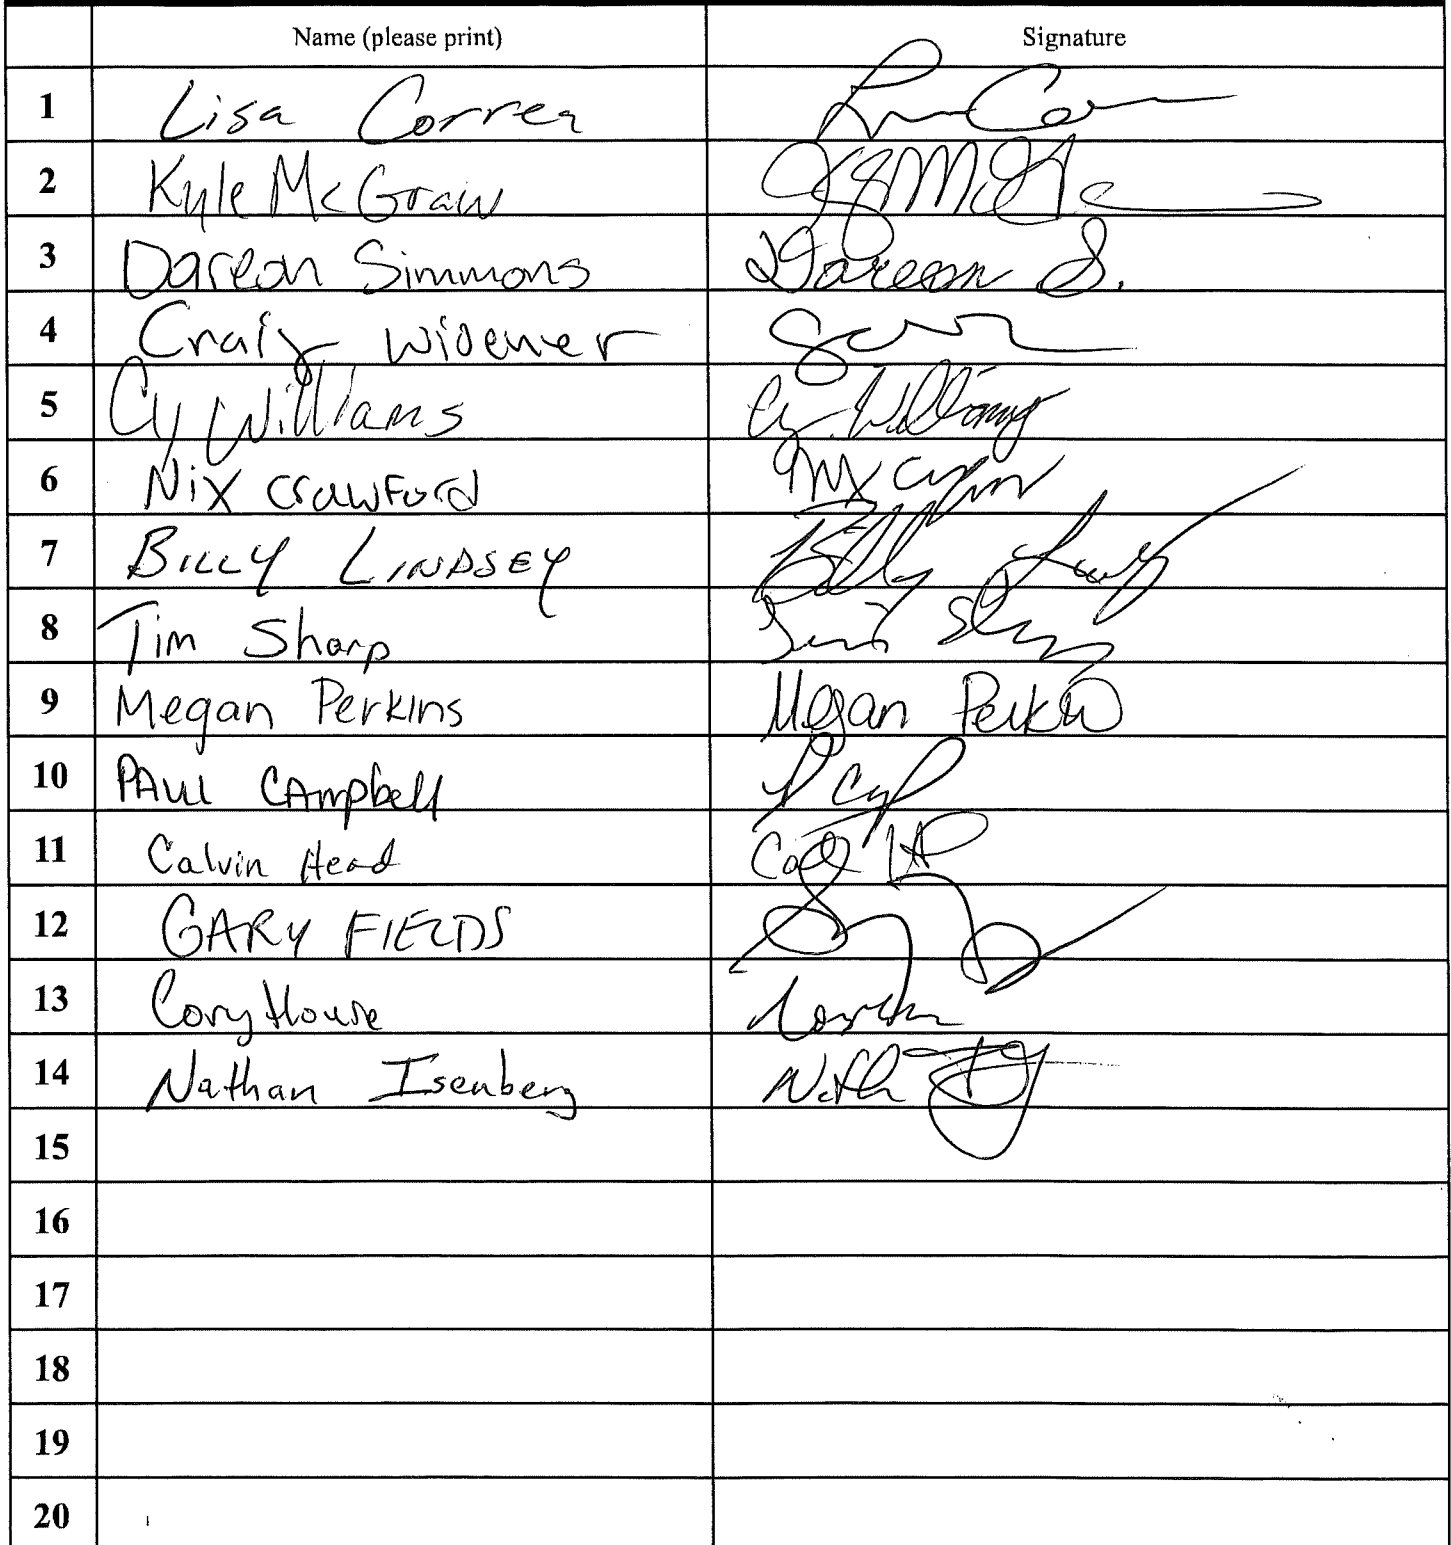 Name (please print) Signature
1 Lisa Correa
2 Kyle McGraw
3 Dareon Simmons Dareon S.
4 Craig Widener
5 Cy Williams Cy Williams
6 Nix Crawford
7 BILLY LINDSEY Billy
8 Tim Sharp
9 Megan Perkins Megan Perkins
10 PAUL CAmpbell
11 Calvin Head
12 GARY FIELDS
13 Cory House
14 Nathan Isenberg
15
16
17
18
19
20